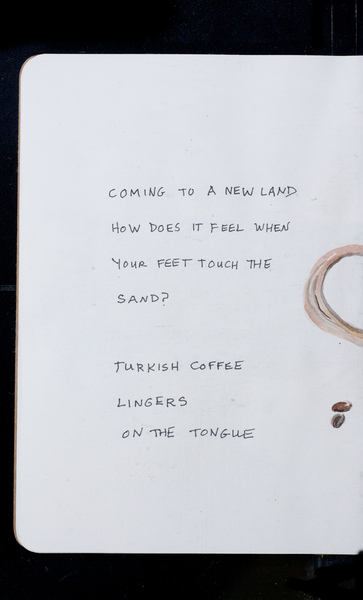 COMING TO A NEW LAND
HOW DOES IT FEEL WHEN
YOUR FEET TOUCH THE
SAND?
TURKISH COFFEE
LINGERS
ON THE TONGUE